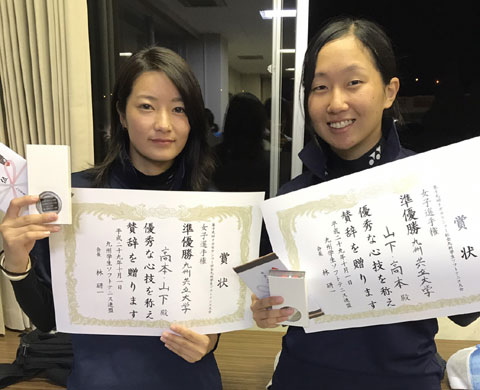 賞状
女子選手権
準優勝 九州共立大学
高本 山下 殿
優秀な心技を称え
賛辞を贈ります
平成二十九年十月一日
九州学生ソフトテニス連盟
会長 林 研一
賞状
女子選手権
準優勝 九州共立大学
山下 高本 殿
優秀な心技を称え
賛辞を贈ります
平成二十九年十月一日
九州学生ソフトテニス連盟
会長 林 研一
YONEX